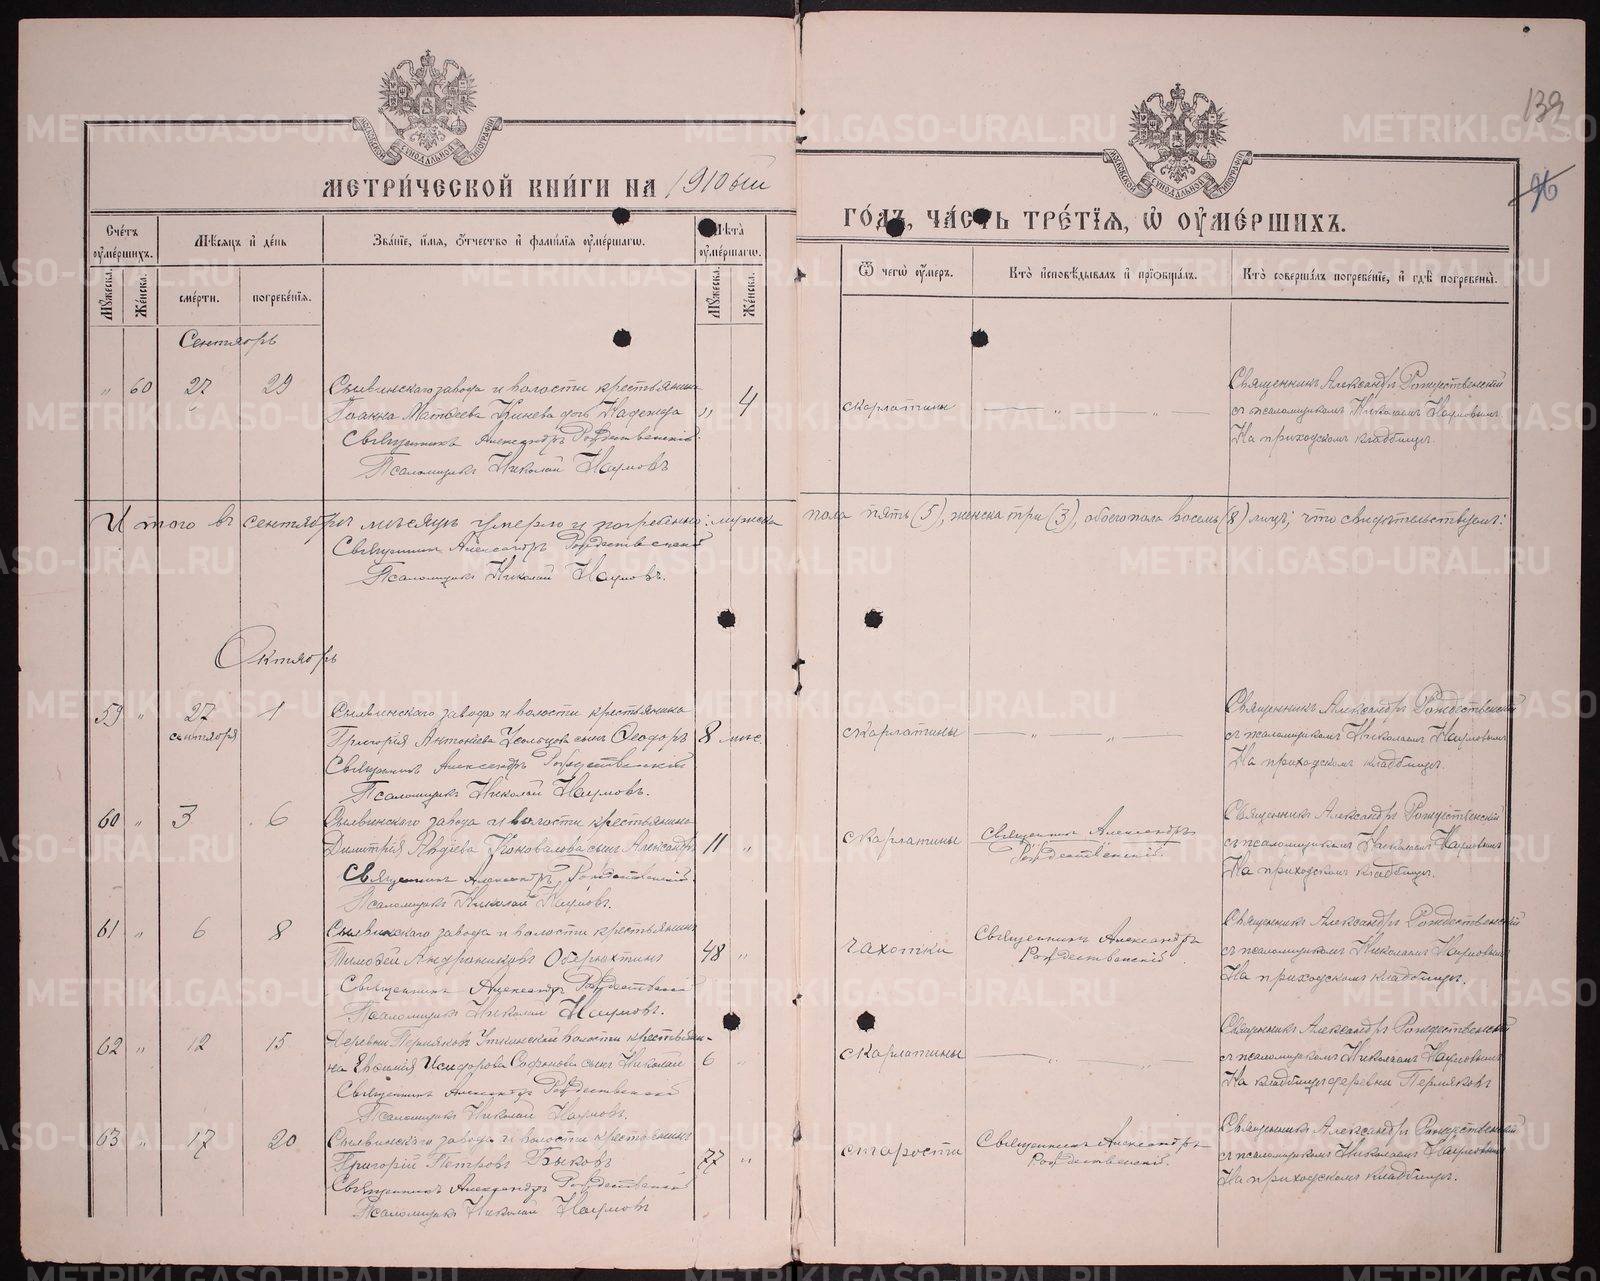 МЕТРИ́ЧЕСКОЙ КНИ́ГИ НА 1910 ый
ГО́ДЪ, ЧА́СТЬ ТРЕ́ТІЯ, Ѡ ОУ҆МЕ́РШИХЪ.
139
96
Сче́тъ оумёршихъ.
Мѣсяцъ и де́нь
Зва́ніе, и́мя, о́тчество и фами́лія оуме́ршагѡ.
Лѣта̀ оуме́ршагѡ.
Му́жеска.
Же́нска.
сме́рти.
погребе́нія.
Му́жеска.
Же́нска.
Ѿ чегѡ̀ оу́меръ.
Кто̀ исповѣ́дывалъ и прїобща́лъ.
Кто̀ соверша́лъ погребе́ніе, и гдѣ̀ погребены̀.
Сентябрь
„ 60 27 29 Сылвинскаго завода и волости крестьянина
Іоанна Матѳеева дочь Надежда „ 4
Священникъ Александръ Рождественскій
Псаломщикъ Николай Наумовъ
скарлатины
Священникъ Александръ Рождественскій
съ псаломщикомъ Николаемъ Наумовымъ
На приходскомъ кладбищѣ.
Итого въ сентябрѣ мѣсяцѣ умерло и погребенно: мужска пола пять (5), женска три (3), обоего пола восемь (8) лицъ; что свидѣтельствуемъ:
Священникъ Александръ Рождественскій
Псаломщикъ Николай Наумовъ.
Октябрь
59 „ 27 сентября 1 Сылвинскаго завода и волости крестьянина
Григорія Антоніева Усольцова сынъ Ѳеодоръ 8 мѣс.
Священникъ Александръ Рождественскій
Псаломщикъ Николай Наумовъ.
скарлатины
Священникъ Александръ Рождественскій
съ псаломщикомъ Николаемъ Наумовымъ
На приходскомъ кладбищѣ.
60 „ 3 6 Сылвинскаго завода и волости крестьянина
Димитрія Коновалова сынъ Александръ 11 „
Священникъ Александръ Рождественскій.
Псаломщикъ Николай Наумовъ.
скарлатины
Священникъ Александръ
Рождественскій.
Священникъ Александръ Рождественскій
съ псаломщикомъ Николаемъ Наумовымъ
На приходскомъ кладбищѣ.
61 „ 6 8 Сылвинскаго завода и волости крестьянинъ
Тимоѳей Андрониковъ Оберюхтинъ 48 „
Священникъ Александръ Рождественскій
Псаломщикъ Николай Наумовъ.
чахотки
Священникъ Александръ
Рождественскій.
Священникъ Александръ Рождественскій
съ псаломщикомъ Николаемъ Наумовымъ
На приходскомъ кладбищѣ.
62 „ 12 15 Деревни Пермяковъ Уткинской волости крестьяни-
на Евѳимія Исидорова Софонова сынъ Николай 6 „
Священникъ Александръ Рождественскій
Псаломщикъ Николай Наумовъ.
скарлатины
Священникъ Александръ Рождественскій
съ псаломщикомъ Николаемъ Наумовымъ
На кладбищѣ деревни Пермяковъ
63 „ 17 20 Сылвинскаго завода и волости крестьянинъ
Григорій Петровъ Быковъ 77 „
Священникъ Александръ Рождественскій
Псаломщикъ Николай Наумовъ
старости
Священникъ Александръ
Рождественскій.
Священникъ Александръ Рождественскій
съ псаломщикомъ Николаемъ Наумовымъ
На приходскомъ кладбищѣ.
METRIKI.GASO-URAL.RU